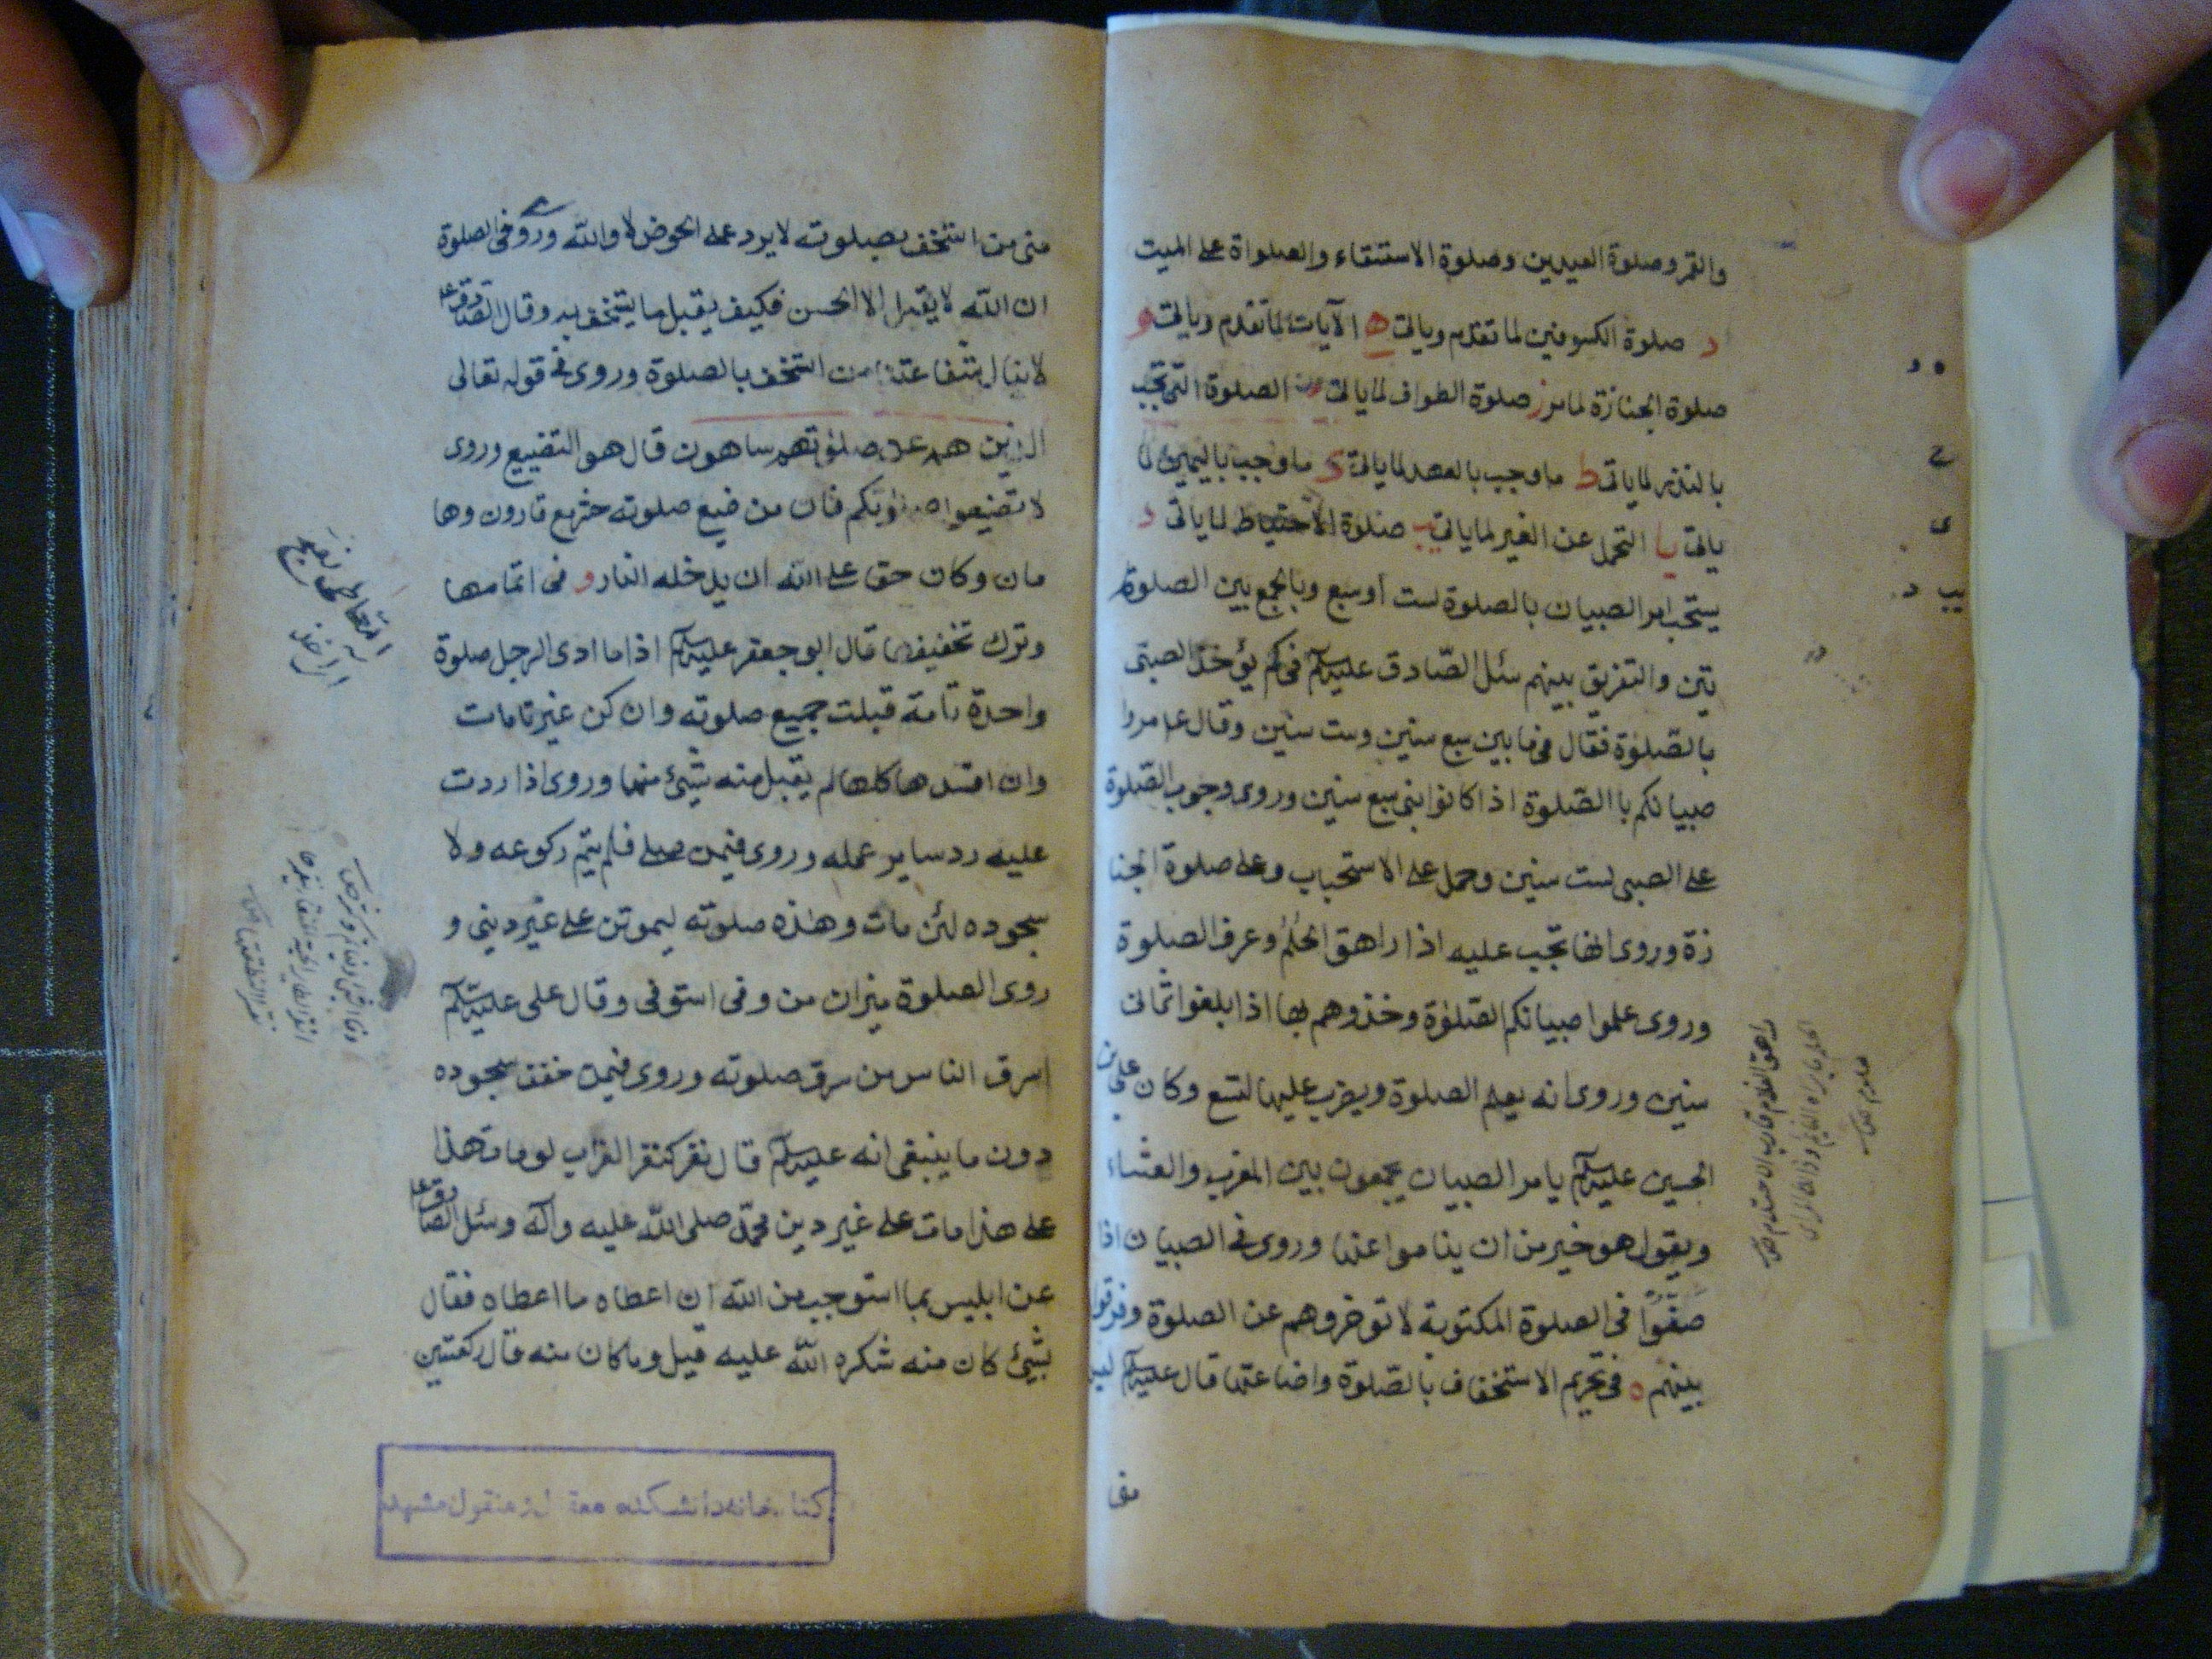 والقمر وصلوة العيدين وصلوة الاستسقاء والصلواة على الميت
د صلوة الكسوفين لما تقدم وياتى ه الآيات لما تقدم وياتى و
صلوة الجنازة لما مر ز صلوة الطواف لما ياتى الصلوة التى تجب
بالنذر لما ياتى ط ما وجب بالعهد لما ياتى ى ما وجب باليمين لما
ياتى يا التحمل عن الغير لما ياتى يب صلوة الاحتياط لما ياتى د
يستحب امر الصبيان بالصلوة لست او سبع وبالجمع بين الصلوة
تين والتفريق بينهم سئل الصّادق عليه السلام فى كم يؤخذ الصبى
بالصّلوٰة فقال فى ما بين سبع سنين وست سنين وقال ع مروا
صبيانكم با الصّلوة اذا كانوا بنى سبع سنين وروى وجوب الصّلوة
على الصبى لست سنين وحمل على الاستحباب وعلى صلوة الجنا
زة وروى انها تجب عليه اذا راهق الحُلُمُ وعرف الصلوة
وروى علموا صبيانكم الصّلوٰة وخذوهم بها اذا بلغوا ثمانى
سنين وروى انه يعلم الصلوة ويضرب عليها لتسع وكان على بن
الحسين عليه السلام يامر الصبيان يجمعون بين المغرب والعشاء
ويقول هو خير من ان يناموا عنها وروى فى الصبيان اذا
صفّوا فى الصلوة المكتوبة لا توخروهم عن الصلوة وفرقوا
بينهم ه فى تحريم الاستخفاف بالصّلوة واضاعتها قال عليه السلام ليس
منى
ه د
ح
ى
يب د
راهق الغلام قارب الاحتلام
منى من استخف بصلوته لا يرد على الحوض لا والله وروى فى الصلوة
ان الله لا يقبل الا الحسن فكيف يقبل ما يستخف به وقال الصّادق ع
لا ينال شفاعتنا من استخف بالصلوة وروى فى قوله تعالى
الذين هم عن صلوٰتهم ساهون قال هو التضييع وروى
لا تضيعوا صلوتكم فان من ضيع صلوته حشر مع قارون وها
مان وكان حق على الله ان يدخله النار و فى اتمامها
وترك تخفيفها قال ابو جعفر عليه السلام اذا ما ادى الرجل صلوة
واحدة تامة قبلت جميع صلوته وان كن غير تامات
وان افسدها كلها لم يقبل منه شىء منها وروى اذا ردت
عليه رد ساير عمله وروى فيمن صلى فلم يتم ركوعه ولا
سجوده لئن مات وهذه صلوته ليموتن على غير دينى و
روى الصلوة ميزان من وفى استوفى وقال على عليه السلام
اسرق الناس من سرق صلوته وروى فيمن خفف سجوده
دون ما ينبغى انه عليه السلام قال نقر كنقر الغراب لو مات هذا
على هذا مات على غير دين محمّد صلى الله عليه وآله وسئل الصادق ع
عن ابليس بما استوجب من الله ان اعطاه ما اعطاه فقال
بشىء كان منه شكره الله عليه قيل وما كان منه قال ركعتين
كتابخانه دانشكده معقول و منقول مشهد